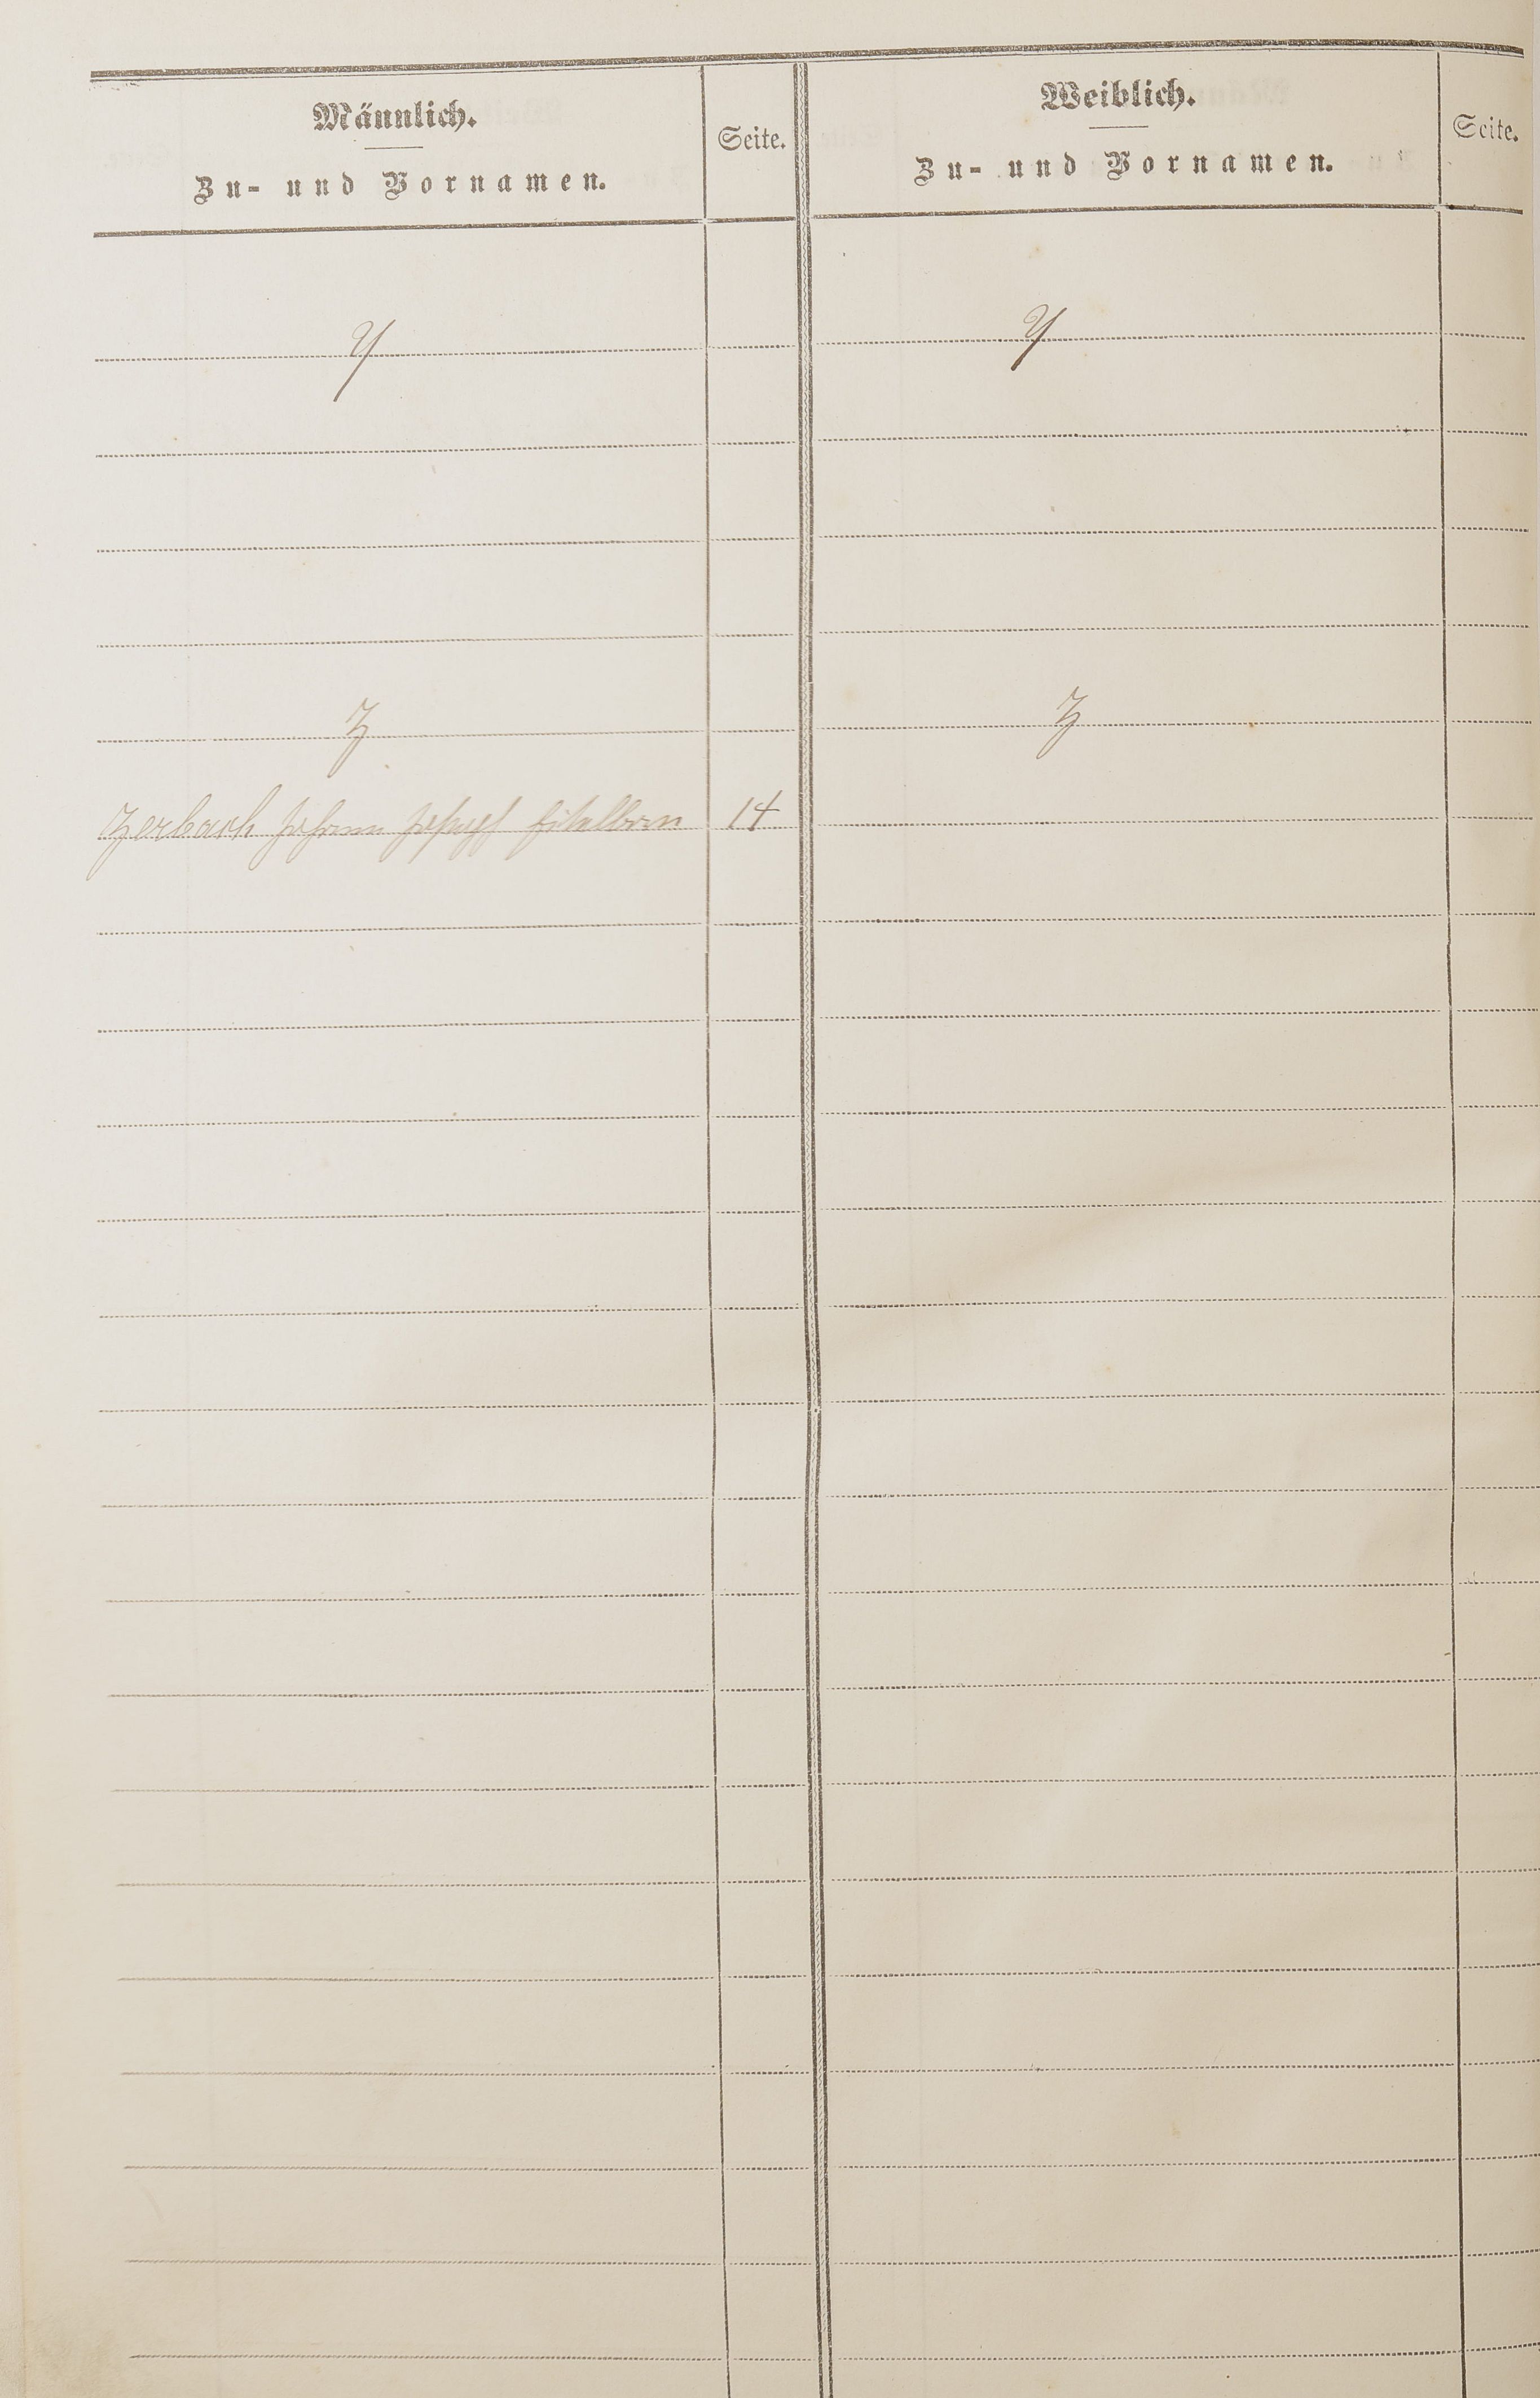 Männlich.
Zu- und Vornamen.
Seite.
Weiblich.
Zu- und Vornamen.
Seite.
Y
Y
Z
Z
Zerbach Johann 14